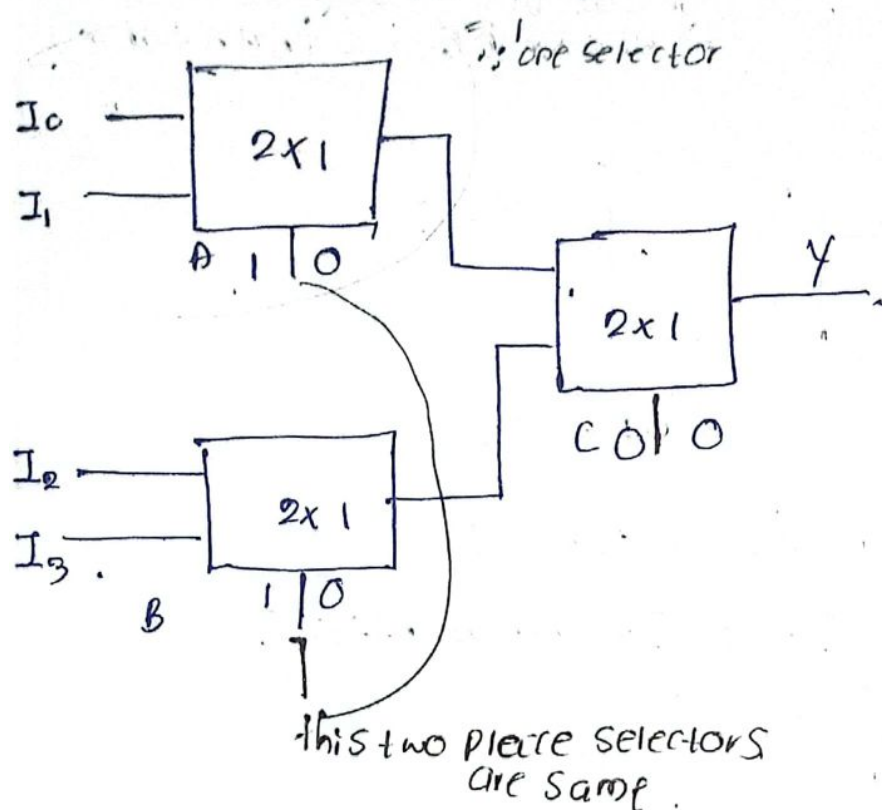 ∴ one selector
I0
2x1
I1
A 1 0
Y
2x1
C 0 0
I2
2x1
I3
1 0
B
this two pleace selectors
are same